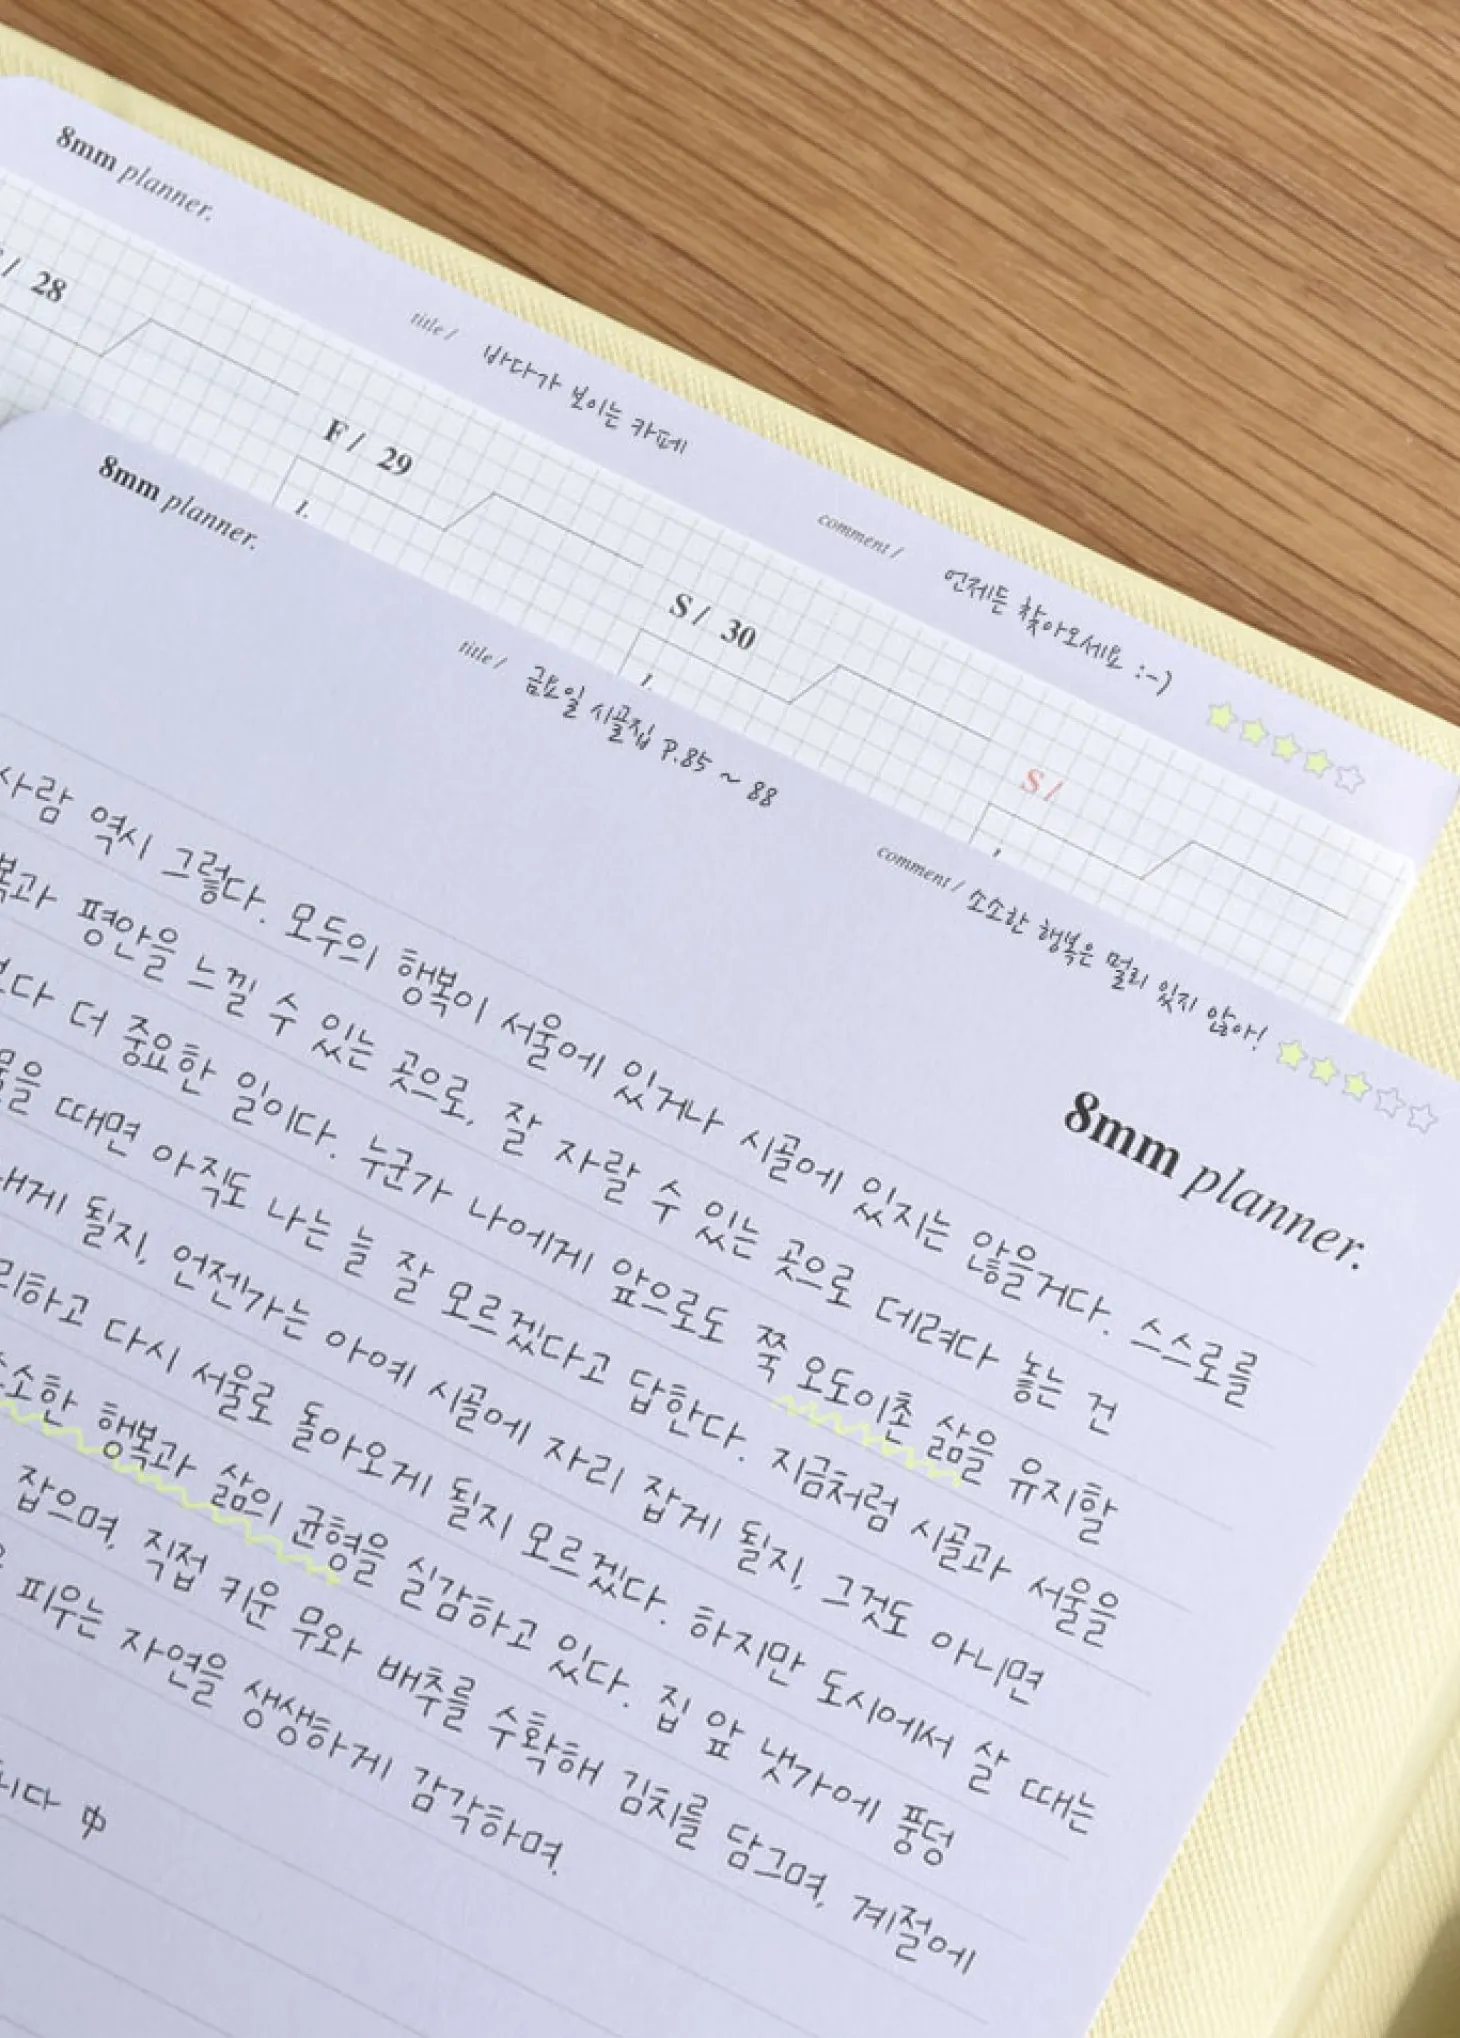 8mm planner.
title / 바다가 보이는 카페
comment / 언제든 찾아오세요 :-)
/ 28
F / 29
1.
S / 30
1.
S /
8mm planner.
title / 금요일 시골집 P.85 ~ 88
comment / 소소한 행복은 멀리 있지 않아!
8mm planner.
사람 역시 그렇다. 모두의 행복이 서울에 있거나 시골에 있지는 않을거다. 스스로를
평안을 느낄 수 있는 곳으로, 잘 자랄 수 있는 곳으로 데려다 놓는 건
보다 더 중요한 일이다. 누군가 나에게 앞으로도 쭉 오도이촌 삶을 유지할
때면 아직도 나는 늘 잘 모르겠다고 답한다. 지금처럼 시골과 서울을
내게 될지, 언젠가는 아예 시골에 자리 잡게 될지, 그것도 아니면
리하고 다시 서울로 돌아오게 될지 모르겠다. 하지만 도시에서 살 때는
소소한 행복과 삶의 균형을 실감하고 있다. 집 앞 냇가에 풍덩
잡으며, 직접 키운 무와 배추를 수확해 김치를 담그며, 계절에
피우는 자연을 생생하게 감각하며.
니다 中